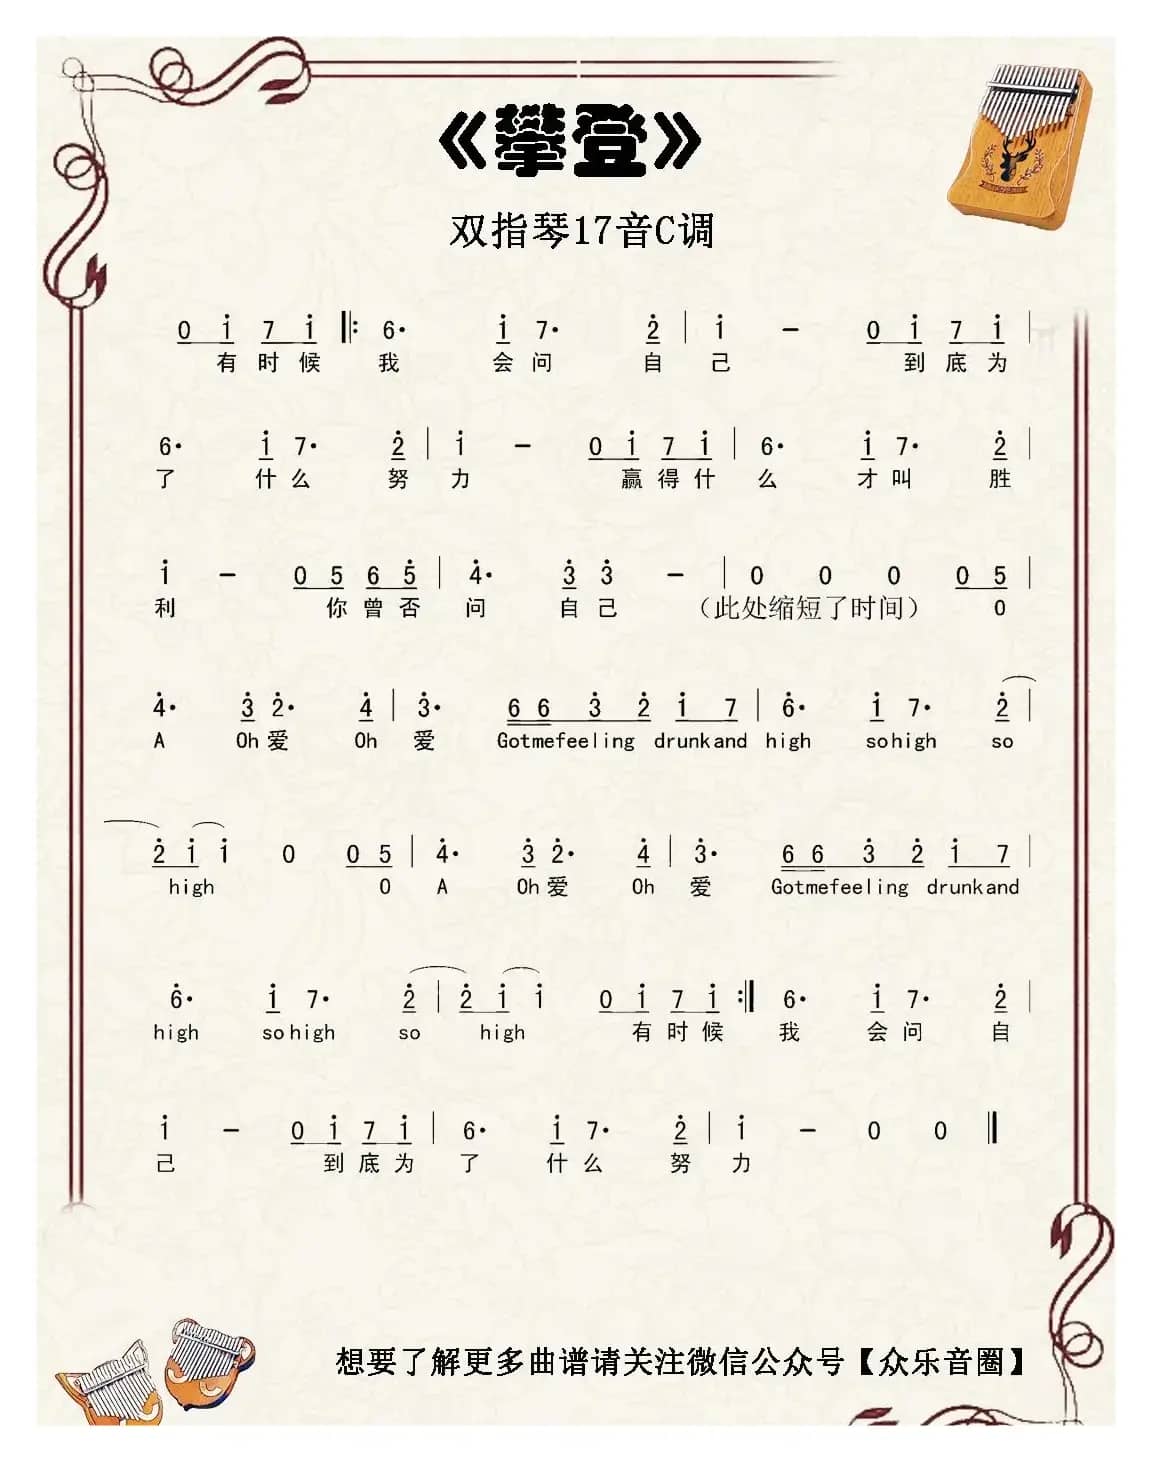 《攀登》
双指琴17音C调
0 i 7 i ‖: 6· i 7· 2̇ | i - 0 i 7 i |
有时候 我 会问 自 己 到底为
6· i 7· 2̇ | i - 0 i 7 i | 6· i 7· 2̇ |
了 什么 努 力 赢得什 么 才叫 胜
i - 0 5 6 5̇ | 4̇· 3̇ 3̇ - | 0 0 0 0 5 |
利 你曾否 问 自己 （此处缩短了时间） O
4̇· 3̇ 2̇· 4̇ | 3̇· 6 6 3̇ 2̇ i 7 | 6̇· i 7· 2̇ |
A Oh爱 Oh 爱 Gotmefeeling drunkand high sohigh so
2̇ i i 0 0 5 | 4̇· 3̇ 2̇· 4̇ | 3̇· 6 6 3 2̇ i 7 |
high O A Oh爱 Oh 爱 Gotmefeeling drunkand
6̇· i 7· 2̇ | 2̇ i i 0 i 7 i :‖ 6· i 7· 2̇ |
high sohigh so high 有时候 我 会问 自
i - 0 i 7 i | 6· i 7· 2̇ | i - 0 0 ‖
己 到底为 了 什么 努 力
想要了解更多曲谱请关注微信公众号【众乐音圈】